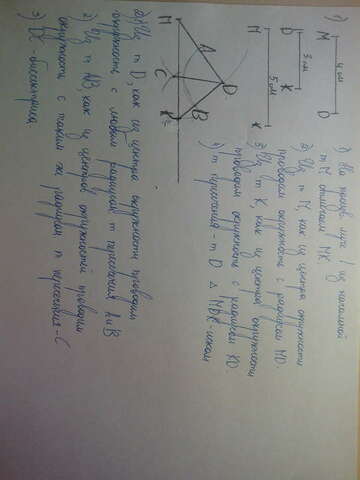 1)
M 4 см D
D 3 см K
M 5 см K
1) На произв. луче / из начальной
т. М откладываем МК.
2) Из т. М, как из центра окружности
проводим окружность с радиусом MD.
3) Из т. К, как из центра окружности
проводим окружность с радиусом KD.
4) т. пересечения - т. D △ MDK искомый
M A D C B K
2) 1) Из т D, как из центра окружности проводим
окружность с любым радиусом т пересечения А и В
2) Из т АВ, как из центров окружностей проводим
окружности с таким же радиусом т пересечения - С
3) DC - биссектриса